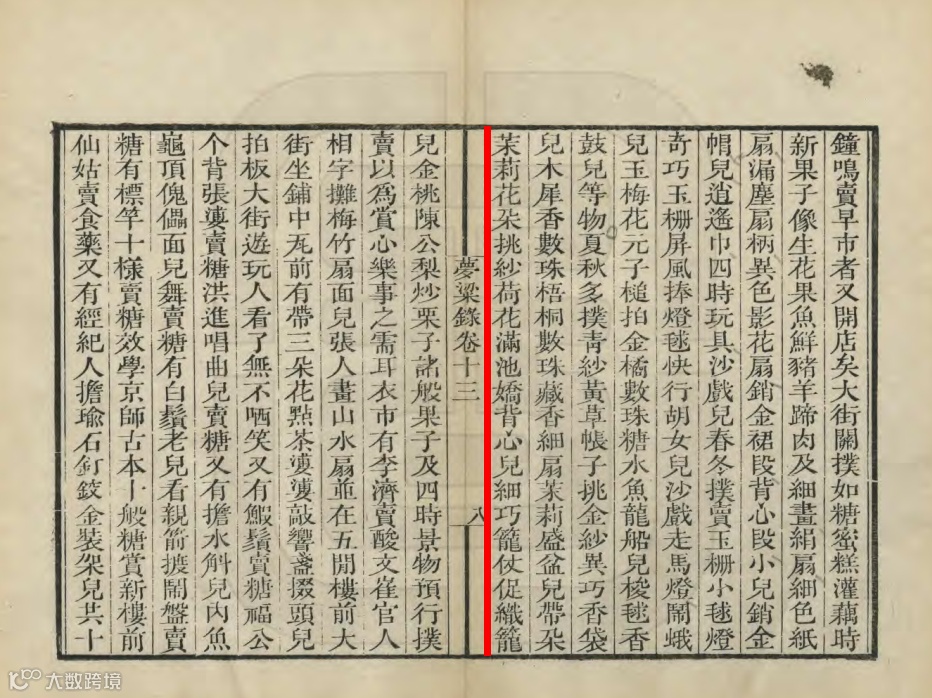 鐘鳴賣早市者又開店矣大街關撲如糖蜜糕灌藕時
新果子像生花果魚鮮豬羊蹄肉及細畫絹扇細色紙
扇漏塵扇柄異色影花扇銷金裙段背心段小兒銷金
帽兒逍遙巾四時玩具沙戲兒春冬撲賣玉柵小毬燈
奇巧玉柵屏風捧燈毬快行胡女兒沙戲走馬燈鬧蛾
兒玉梅花元子槌拍金橘數珠糖水魚龍船兒梭毬香
鼓兒等物夏秋多撲青紗黃草帳子挑金紗異巧香袋
兒木犀香數珠梧桐數珠藏香細扇茉莉盛盆兒帶朶
茉莉花朶挑紗荷花滿池嬌背心兒細巧籠仗促織籠
夢粱錄卷十三
八
兒金桃陳公梨炒栗子諸般果子及四時景物預行撲
賣以爲賞心樂事之需耳衣市有李濟賣酸文崔官人
相字攤梅竹扇面兒張人畫山水扇並在五間樓前大
街坐鋪中瓦前有帶三朶花點茶婆婆敲響盞掇頭兒
拍板大街遊玩人看了無不哂笑又有鰕鬚賣糖福公
个背張婆賣糖洪進唱曲兒賣糖又有擔水斛兒內魚
龜頂傀儡面兒舞賣糖有白鬚老兒看親箭㨪鬧盤賣
糖有標竿十樣賣糖效學京師古本十般糖賞新樓前
仙姑賣食藥又有經紀人擔瑜石釘鉸金裝架兒共十
大数跨境